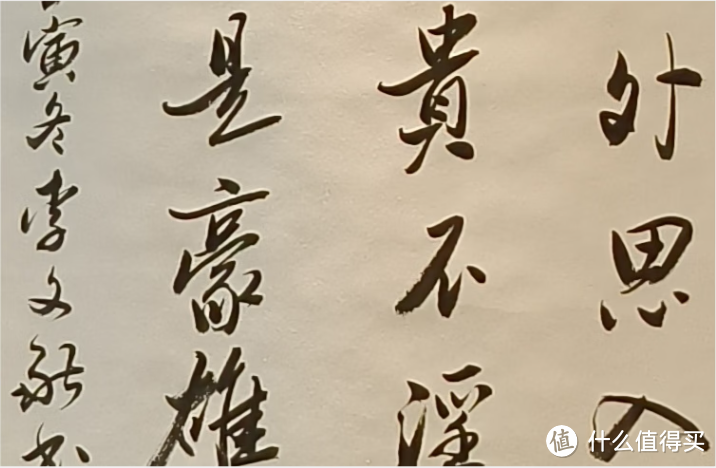 外思入
貴不淫
是豪雄
寅冬李文毅书
值 什么值得买